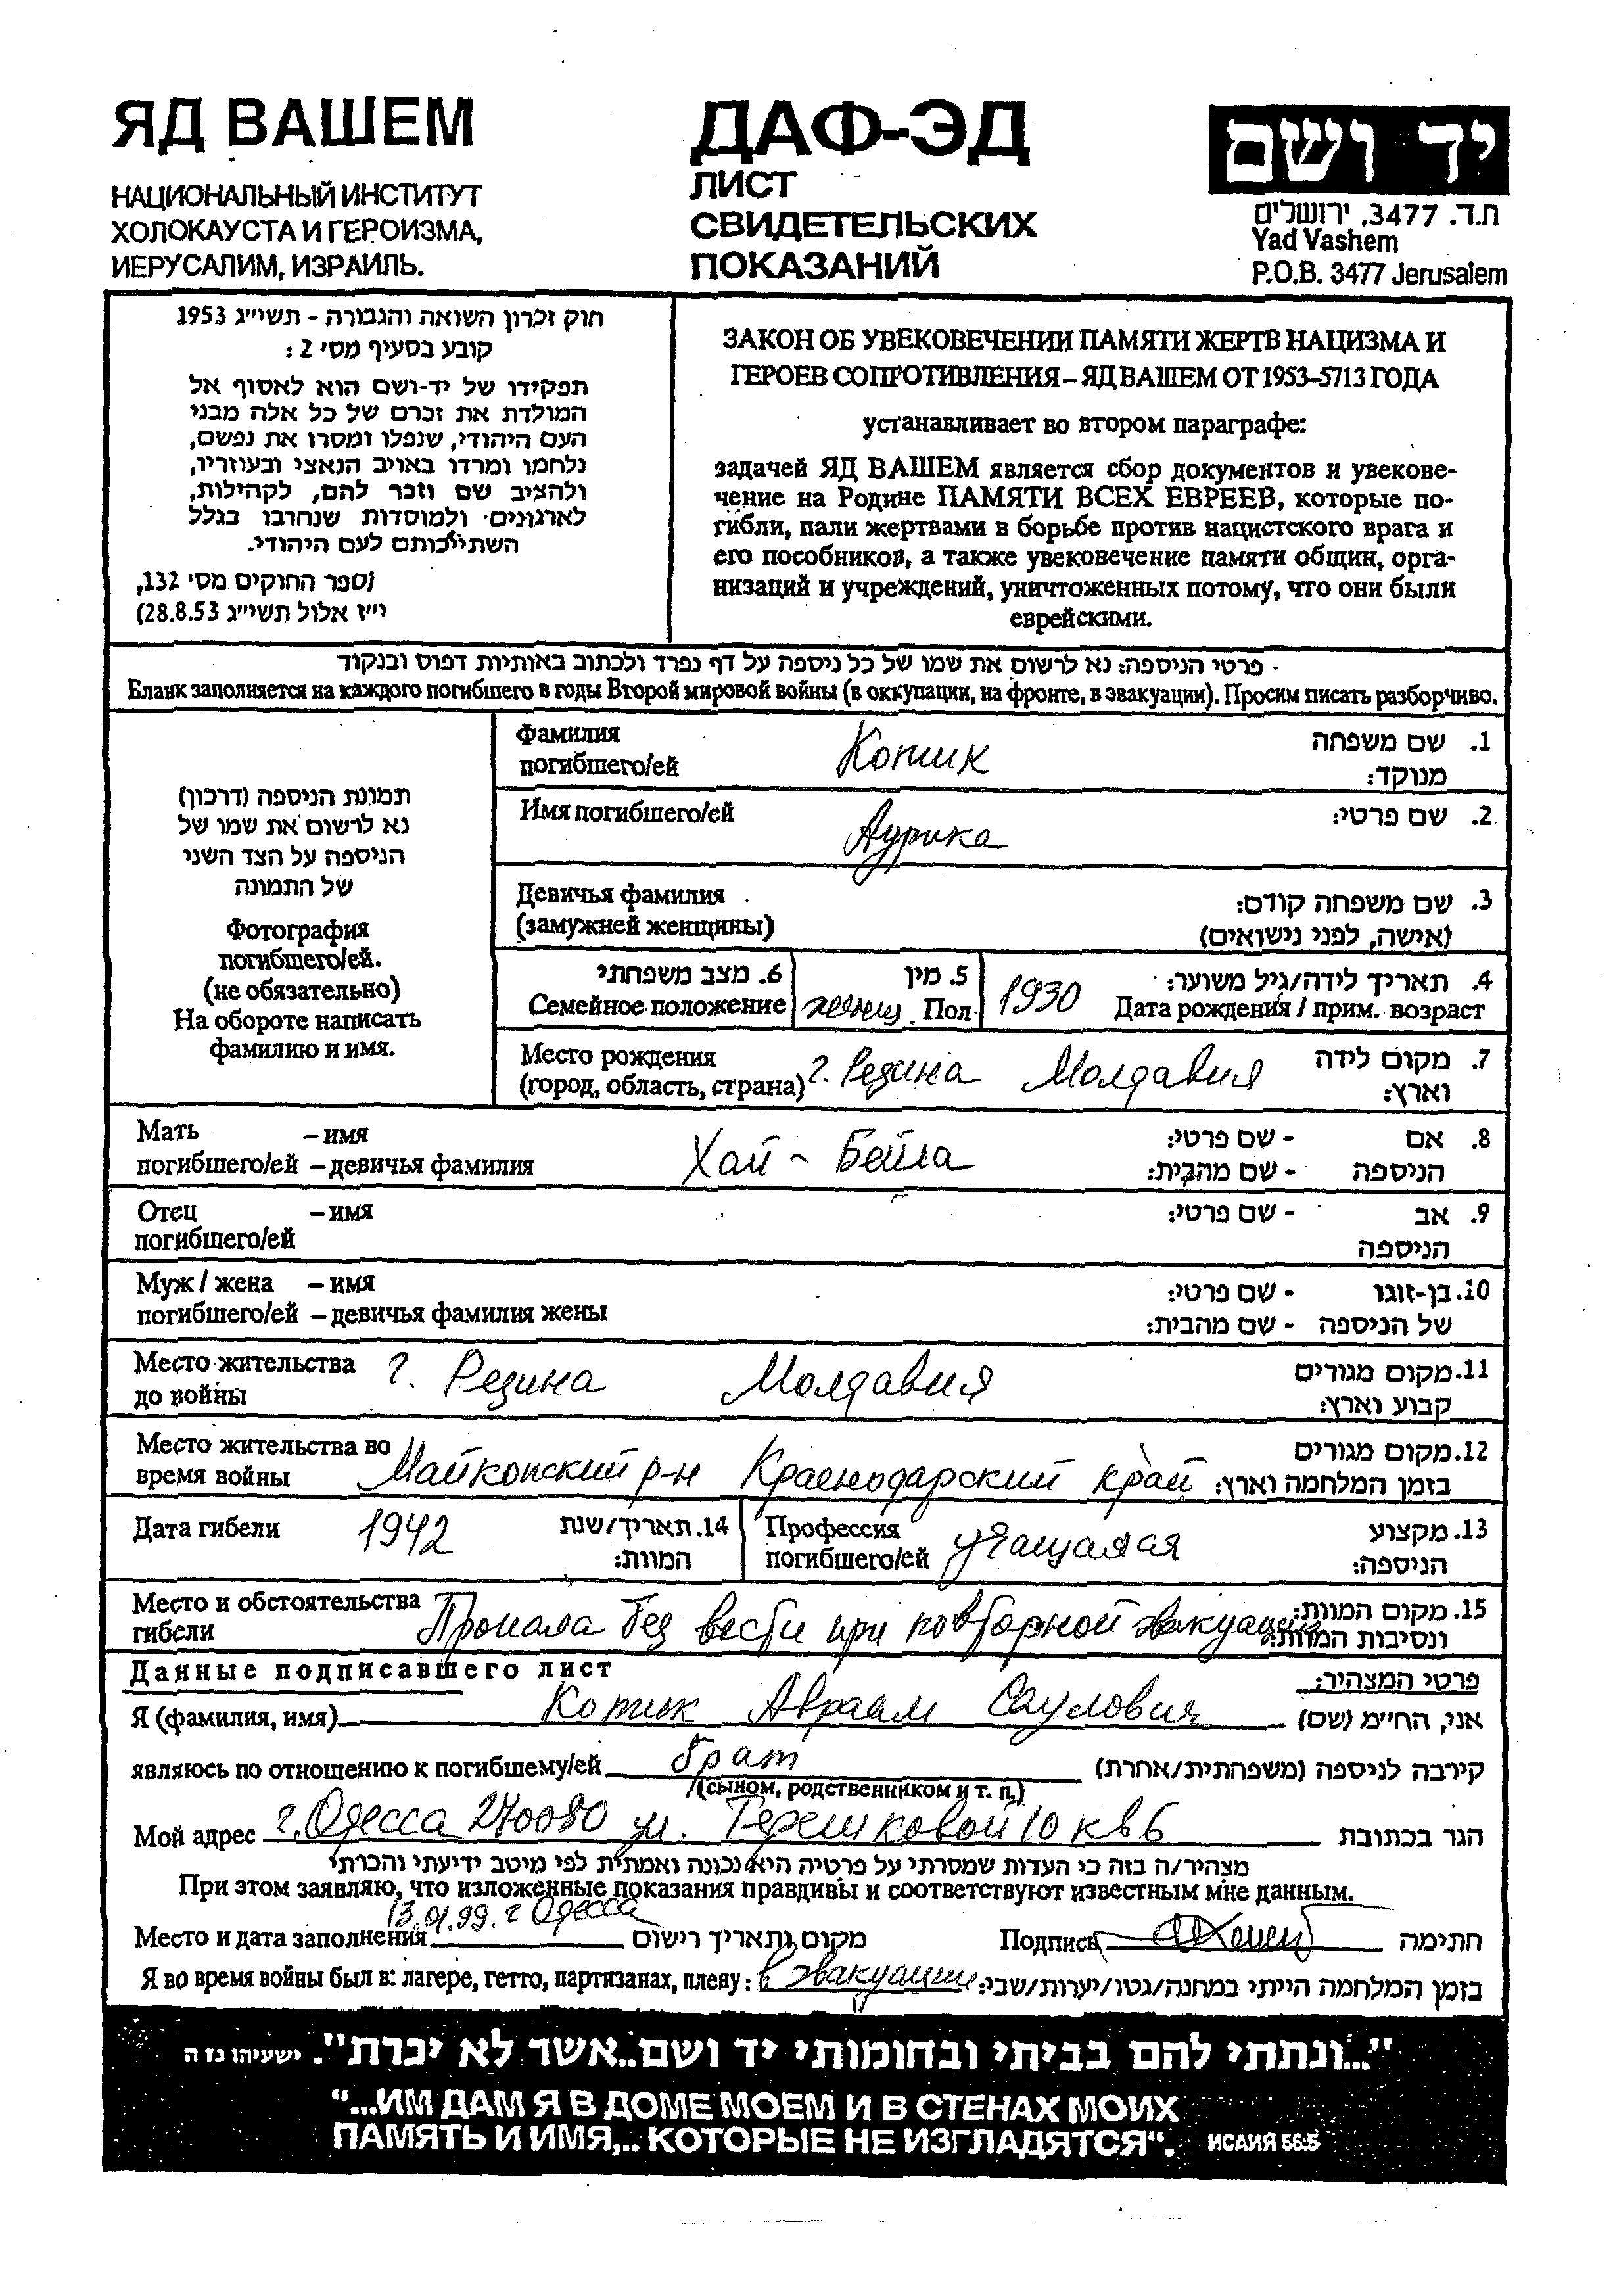 ЯД ВАШЕМ
НАЦИОНАЛЬНЫЙ ИНСТИТУТ
ХОЛОКАУСТА И ГЕРОИЗМА,
ИЕРУСАЛИМ, ИЗРАИЛЬ.
ДАФ-ЭД
ЛИСТ
СВИДЕТЕЛЬСКИХ
ПОКАЗАНИЙ
יד ושם
ת.ד. 3477, ירושלים
Yad Vashem
P.O.B. 3477 Jerusalem
חוק זכרון השואה והגבורה - תשי״ג 1953
קובע בסעיף מס׳ 2 :
תפקידו של יד-ושם הוא לאסוף אל
המולדת את זכרם של כל אלה מבני
העם היהודי, שנפלו ומסרו את נפשם,
נלחמו ומרדו באויב הנאצי ובעוזריו,
ולהציב שם וזכר להם, לקהילות,
לארגונים ולמוסדות שנחרבו בגלל
השתייכותם לעם היהודי.
(ספר החוקים מס׳ 132,
י״ז אלול תשי״ג 28.8.53)
ЗАКОН ОБ УВЕКОВЕЧЕНИИ ПАМЯТИ ЖЕРТВ НАЦИЗМА И
ГЕРОЕВ СОПРОТИВЛЕНИЯ – ЯД ВАШЕМ ОТ 1953–5713 ГОДА
устанавливает во втором параграфе:
задачей ЯД ВАШЕМ является сбор документов и увекове-
чение на Родине ПАМЯТИ ВСЕХ ЕВРЕЕВ, которые по-
гибли, пали жертвами в борьбе против нацистского врага и
его пособников, а также увековечение памяти общин, орга-
низаций и учреждений, уничтоженных потому, что они были
еврейскими.
פרטי הניספה: נא לרשום את שמו של כל ניספה על דף נפרד ולכתוב באותיות דפוס ובנקוד
Бланк заполняется на каждого погибшего в годы Второй мировой войны (в оккупации, на фронте, в эвакуации). Просим писать разборчиво.
תמונת הניספה (דרכון)
נא לרשום את שמו של
הניספה על הצד השני
של התמונה
Фотография
погибшего/ей.
(не обязательно)
На обороте написать
фамилию и имя.
Фамилия
погибшего/ей Котик 1. שם משפחה
מנוקד:
Имя погибшего/ей Аурика 2. שם פרטי:
Девичья фамилия 3. שם משפחה קודם:
(замужней женщины) (אישה, לפני נישואים)
6. מצב משפחתי 5. מין 4. תאריך לידה/גיל משוער:
Семейное положение женщ. Пол 1930 Дата рождения / прим. возраст
Место рождения 7. מקום לידה
(город, область, страна) г. Резина Молдавия וארץ:
Мать – имя 8. אם - שם פרטי:
погибшего/ей – девичья фамилия Хай - Бейла הניספה - שם מהבית:
Отец – имя 9. אב - שם פרטי:
погибшего/ей הניספה
Муж / жена – имя 10. בן-זוגו - שם פרטי:
погибшего/ей – девичья фамилия жены של הניספה - שם מהבית:
Место жительства г. Резина Молдавия 11. מקום מגורים
до войны קבוע וארץ:
Место жительства во 12. מקום מגורים
время войны Майкопский р-н Краснодарский край בזמן המלחמה וארץ:
Дата гибели 1942 14. תאריך/שנת
המוות:
Профессия 13. מקצוע
погибшего/ей учащаяся הניספה:
Место и обстоятельства 15. מקום המוות:
гибели Пропала без вести при повторной эвакуации ונסיבות המוות:
Данные подписавшего лист פרטי המצהיר:
Я (фамилия, имя) Котик Авраам Саулович אני, החי״מ (שם)
являюсь по отношению к погибшему/ей брат קירבה לניספה (משפחתית/אחרת)
(сыном, родственником и т. п.)
Мой адрес г. Одесса 270080 ул. Терешковой 10 кв 6 הגר בכתובת
מצהיר/ה בזה כי העדות שמסרתי על פרטיה היא נכונה ואמתית לפי מיטב ידיעתי והכרתי
При этом заявляю, что изложенные показания правдивы и соответствуют известным мне данным.
Место и дата заполнения 13.01.99. г Одесса מקום ותאריך רישום Подпись חתימה
Я во время войны был в: лагере, гетто, партизанах, плену: в эвакуации בזמן המלחמה הייתי במחנה/גטו/יערות/שבי:
"...ונתתי להם בביתי ובחומותי יד ושם..אשר לא יכרת". ישעיהו נז ה
"...ИМ ДАМ Я В ДОМЕ МОЕМ И В СТЕНАХ МОИХ
ПАМЯТЬ И ИМЯ,.. КОТОРЫЕ НЕ ИЗГЛАДЯТСЯ". ИСАИЯ 56:5